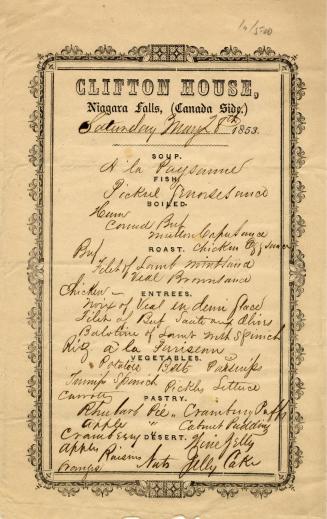 CLIFTON HOUSE,
Niagara Falls, (Canada Side.)
Saturday May 28th 1853.
SOUP.
A'la Paysanne
FISH.
Pickrel Sauce
BOILED.
Ham
Corned Beef
Mutton Caper Sauce
Chicken Egg Sauce
ROAST.
Beef
Filet of Lamb
Veal Brown Sauce
Chicken
ENTREES.
Noix of Veal in demi glace
Filet of Beef Saute aux Olives
Balotine of Lamb with Spinich
Riz a la
VEGETABLES.
Potatoes Beets Parsnips
Turnips Spinich Pickles Lettuce
Carrots
PASTRY.
Rhubarb Pie " Cranbury Puffs
Apple " Cabnet Pudding
Cranberry
DESERT.
Wine Jelly
Apples Raisins Nuts Jelly Cake
Oranges